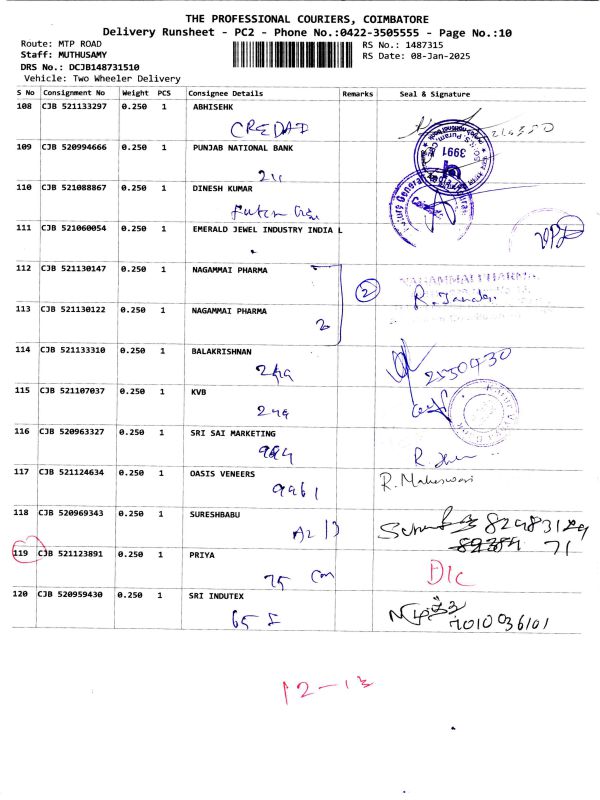 THE PROFESSIONAL COURIERS, COIMBATORE
Delivery Runsheet - PC2 - Phone No.:0422-3505555 - Page No.:10
Route: MTP ROAD
RS No.: 1487315
Staff: MUTHUSAMY
RS Date: 08-Jan-2025
DRS No.: DCJB148731510
Vehicle: Two Wheeler Delivery
S No Consignment No Weight PCS Consignee Details Remarks Seal & Signature
108 CJB 521133297 0.250 1 ABHISEHK
CREDAD
109 CJB 520994666 0.250 1 PUNJAB NATIONAL BANK
3991
110 CJB 521088867 0.250 1 DINESH KUMAR
111 CJB 521060054 0.250 1 EMERALD JEWEL INDUSTRY INDIA L
112 CJB 521130147 0.250 1 NAGAMMAI PHARMA
2 NAGAMMAI PHARMA
113 CJB 521130122 0.250 1 NAGAMMAI PHARMA
2
114 CJB 521133310 0.250 1 BALAKRISHNAN
2550430
115 CJB 521107037 0.250 1 KVB
116 CJB 520963327 0.250 1 SRI SAI MARKETING
117 CJB 521124634 0.250 1 OASIS VENEERS
9961 R. Maheswari
118 CJB 520969343 0.250 1 SURESHBABU
71
119 CJB 521123891 0.250 1 PRIYA
75 Com D/C
120 CJB 520959430 0.250 1 SRI INDUTEX
65 I 7010036101
12-13